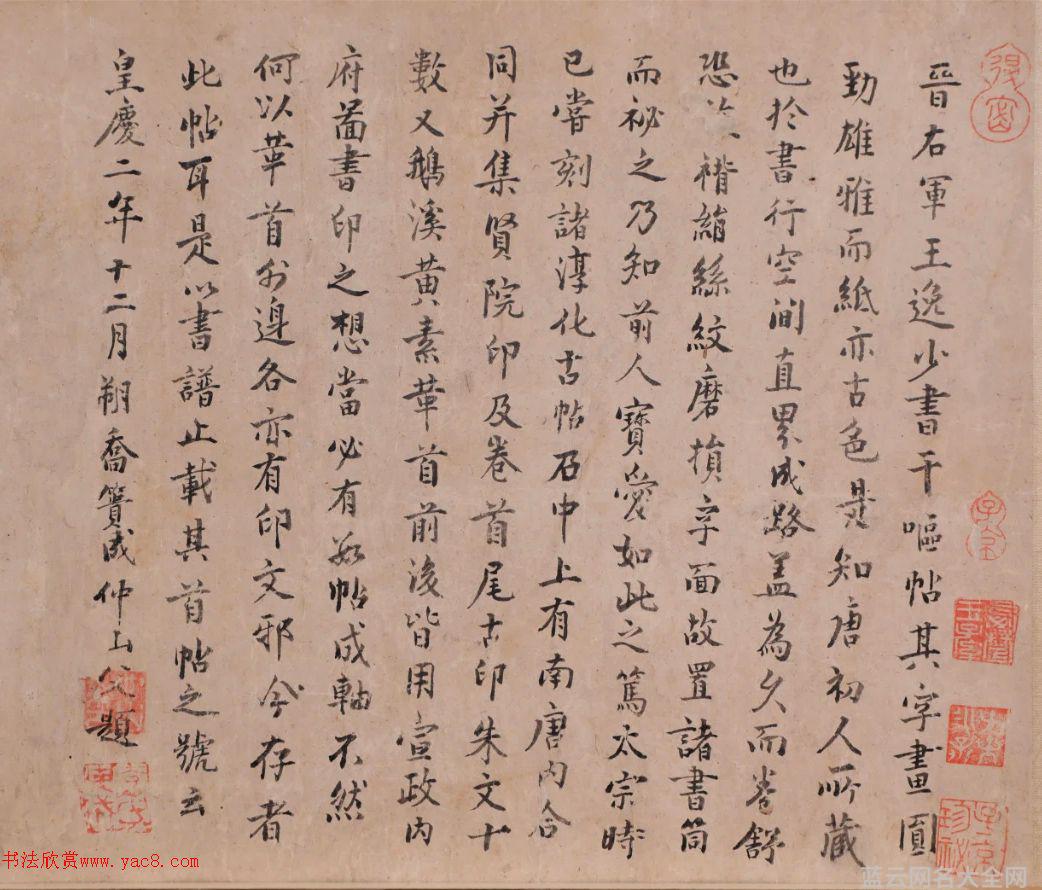 晉右軍王逸少書干嘔帖其字畫圓
勁雄雅而紙亦古色是知唐初人所藏
也於書行空間直累成路盖為久而卷舒
恐 褙絹絲紋磨損字面故置諸書筒
而祕之乃知前人寶愛如此之篤太宗時
已嘗刻諸淳化古帖石中上有南唐內合
同并集賢院印及卷首尾古印朱文十
數又鵝溪黃素莘首前後皆用宣政內
府啚書印之想當必有數帖成軸不然
何以莘首外邊各亦有印文邪今存者
此帖耳是以書譜止載其首帖之號云
皇慶二年十二月朔喬簣成仲山父題
书法欣赏www.yac8.com
蓝云网名大全网